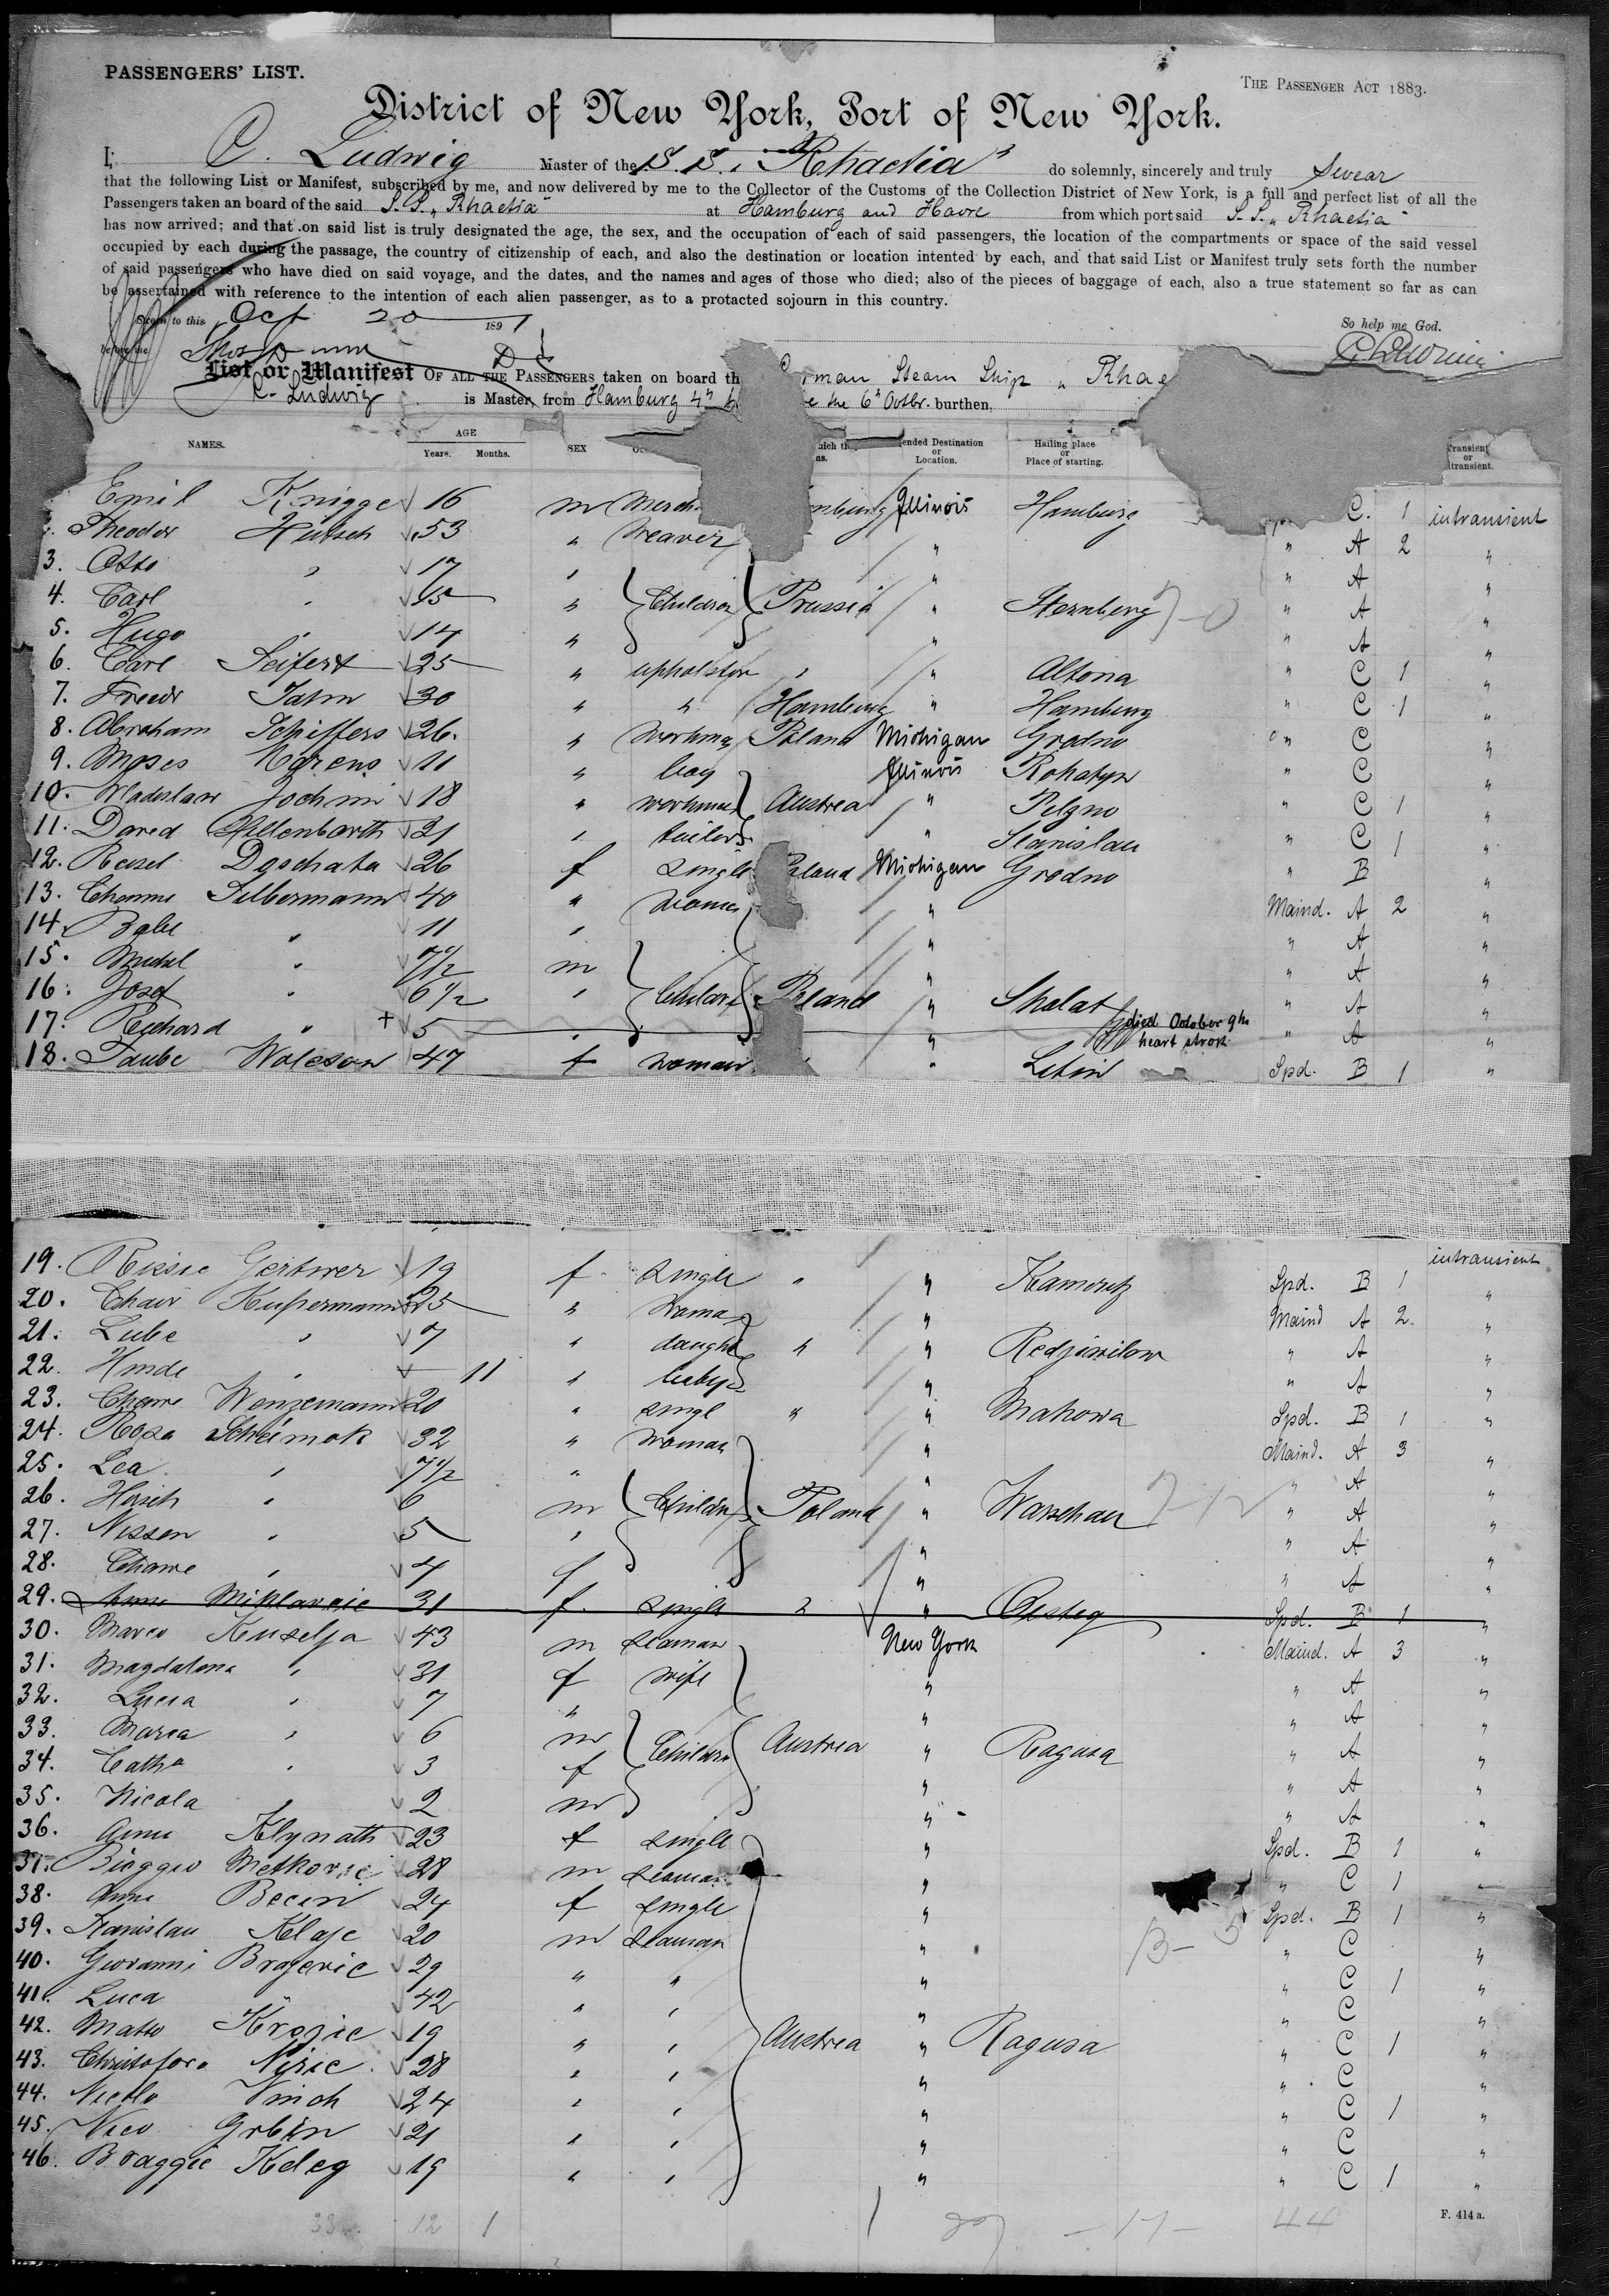 PASSENGERS' LIST.
THE PASSENGER ACT 1883.
District of New York, Port of New York.
I, C. Ludwig Master of the S. S. „Rhaetia" do solemnly, sincerely and truly swear
that the following List or Manifest, subscribed by me, and now delivered by me to the Collector of the Customs of the Collection District of New York, is a full and perfect list of all the
Passengers taken an board of the said S. S. „Rhaetia" at Hamburg and Havre from which port said S. S. „Rhaetia"
has now arrived; and that on said list is truly designated the age, the sex, and the occupation of each of said passengers, the location of the compartments or space of the said vessel
occupied by each during the passage, the country of citizenship of each, and also the destination or location intented by each, and that said List or Manifest truly sets forth the number
of said passengers who have died on said voyage, and the dates, and the names and ages of those who died; also of the pieces of baggage of each, also a true statement so far as can
be assertained with reference to the intention of each alien passenger, as to a protacted sojourn in this country.
Sworn to this Oct 20 1891 So help me God.
before me
List or Manifest OF ALL THE PASSENGERS taken on board th rman Steam Ship „ Rhae
C. Ludwig is Master, from Hamburg 4th the 6th Octbr. burthen,
NAMES. AGE Years. Months. SEX ended Destination or Location. Hailing place or Place of starting. Transient or intransient.
Emil Knigge 16 m Merch Illinois Hamburg C. 1 intransient
Theodor Hutsch 53 " Weaver " " A 2 "
3. Otto " 17 " " " A "
4. Carl " 15 " Children Prussia " Sternberg " A "
5. Hugo " 14 " " " A "
6. Carl Seifert 25 " upholster " " Altona " C 1 "
7. Friedr Jahn 30 " " Hamburg " Hamburg " C 1 "
8. Abraham Schiffers 26. " workmn Poland Michigan Grodno " C "
9. Moses Marens 11 " boy Illinois Rohatyn " C "
10. Wladislaw Jochmi 18 " workmn Austrea " Pilzno " C 1 "
11. David Hellenbarth 31 " tailor " Stanislau " C 1 "
12. Reisel Dgochata 26 f single Poland Michigan Grodno " B "
13. Channe Silbermann 40 " woman " Maind. A 2 "
14. " 11 " " " A "
15. Michel " 7 1/2 m " " A "
16. Josef " 6 1/2 " Childrn Poland " Skalat " A "
17. Richard " + 5 " " died October 9th heart strok " A "
18. Taube Woleson 47 f woman " " Letin Spd. B 1 "
19. Rissie Gertwer 19 f single " " Kamenetz Spd. B 1 intransient
20. Chaie Kupermann 25 " Woman " Maind A 2. "
21. Lube " 7 " daught " " Redziwilow " A "
22. Hinde " 11 " baby " " A "
23. Chawe Wenzemann 20 " singl " " Makowa Spd. B 1 "
24. Rosa Scheimok 32 " Woman " Maind. A 3 "
25. Lea " 7 1/2 " " " A "
26. Hersch " 6 m Childrn Poland " Warschau " A "
27. Nissen " 5 " " " A "
28. Chawe " 4 f " " A "
29. Anna Miklavcic 31 f. single " " Spd. B 1 "
30. Marco Kuselja 43 m seaman New York Maind. A 3 "
31. Magdalena " 31 f wife " " A "
32. Lucia " 7 " " " A "
33. Maria " 6 m Childrn Austrea " Ragusa " A "
34. Catha " 3 f " " A "
35. Nicola " 2 m " " A "
36. Anna Klynath 23 f single " Spd. B 1 "
37. Biaggio Metkovic 28 m seaman " " C 1 "
38. Anna Becen 24 f single " Spd. B 1 "
39. Stanislau Klaje 20 m seaman " " C "
40. Giovanni Brajevic 29 " " " " C 1 "
41. Luca " 42 " " " " C "
42. Mato Krosie 19 " " Austrea " Ragusa " C 1 "
43. Christoforo Niric 28 " " " " C "
44. Nicolo Vinch 24 " " " " C 1 "
45. Nico Grbin 21 " " " " C "
46. Braggie Keleg 19 " " " " C 1 "
12 1 27 - 17 - 44
F. 414 a.